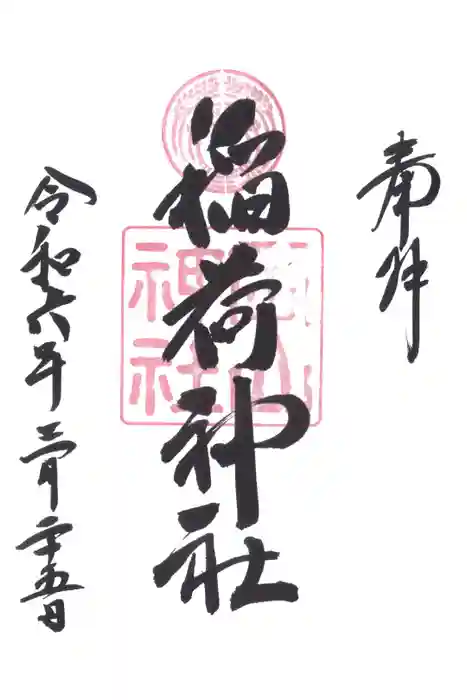 奉拝
稲荷神社
令和六年三月二十五日
神社